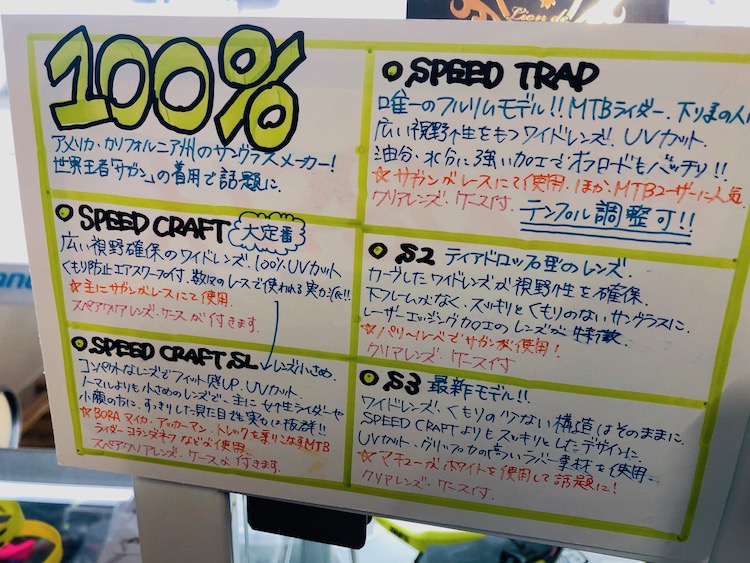 100%
アメリカ・カリフォルニア州のサングラスメーカー!
世界王者「サガン」の着用で話題に。
SPEED CRAFT 大定番
広い視野確保のワイドレンズ。100%UVカット
くもり防止エアスクープ付。数々のレースで使われる実力派!!
☆主にサガンがレースにて使用。
スペアクリアレンズ・ケースが付きます。
SPEED CRAFT SL レンズ小さめ。
コンパクトなレンズでフィット感UP。UVカット。
ノーマルよりも小さめのレンズで、主に女性ライダーや
小顔の方に。すっきりした見た目 実力は抜群!!
☆BORA マイカ、アッカーマン、トレックを乗りこなすMTB
ライダー ヨランダネフ などが使用
スペアクリアレンズ・ケースが付きます。
SPEED TRAP
唯一のフルリムモデル!!MTBライダー、下りまの人
広い視野性をもつワイドレンズ。UVカット。
油分・水分に強い加工でオフロードもバッチリ!!
☆サガンがレースにて使用。ほか、MTBユーザーに人気。
クリアレンズ、ケース付。 テンプル調整可!!
S2 ティアドロップ型のレンズ。
カーブしたワイドレンズが視野性を確保。
下フレームがなく、スッキリとくもりのないサングラスに。
レーザーエッジング加工のレンズが特徴。
☆パリ〜ルーベでサガンが使用!
クリアレンズ。ケース付
S3 最新モデル!!
ワイドレンズ、くもりの少ない構造はそのままに、
SPEED CRAFTよりもスッキリとしたデザインに。
UVカット、グリップ力の高いラバー素材を使用。
☆マチューがホワイトを使用して話題に!
クリアレンズ、ケース付。